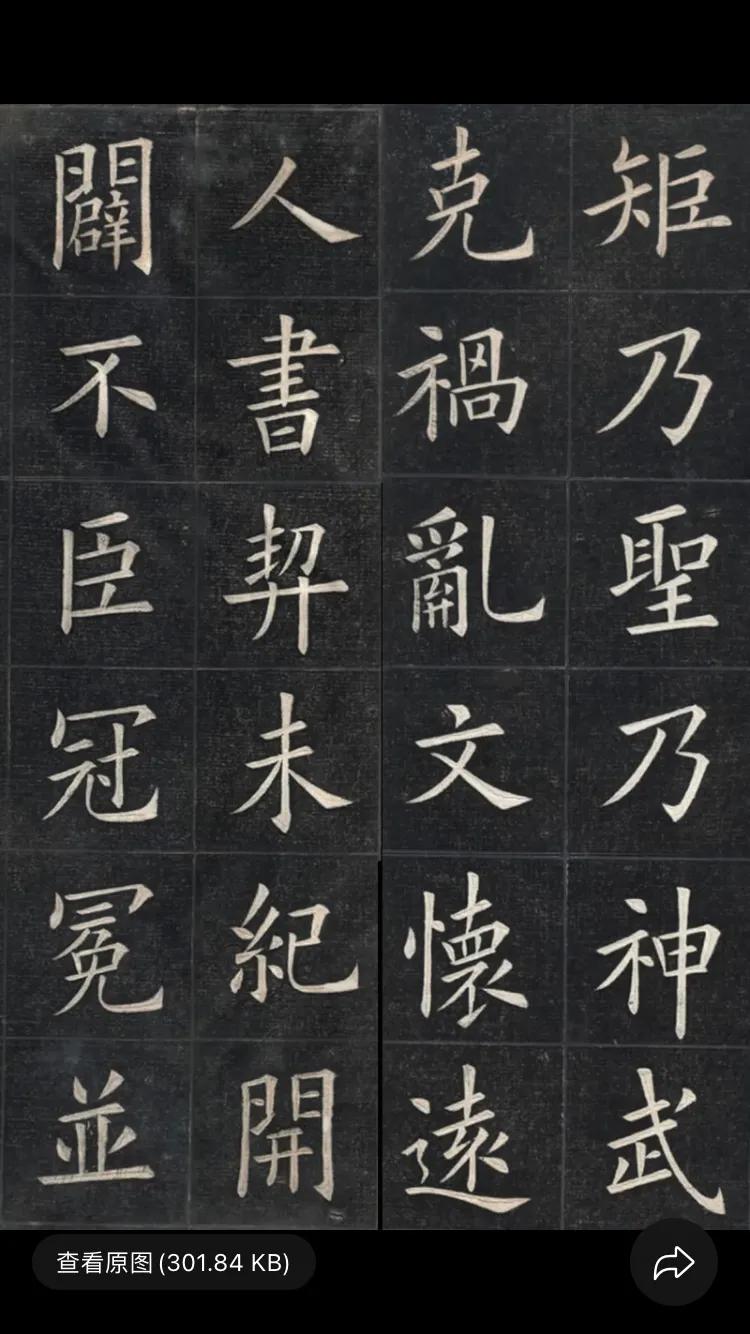 矩乃聖乃神武
克禍亂文懷遠
人書契未紀開
闢不臣冠冕並
查看原图(301.84 KB)